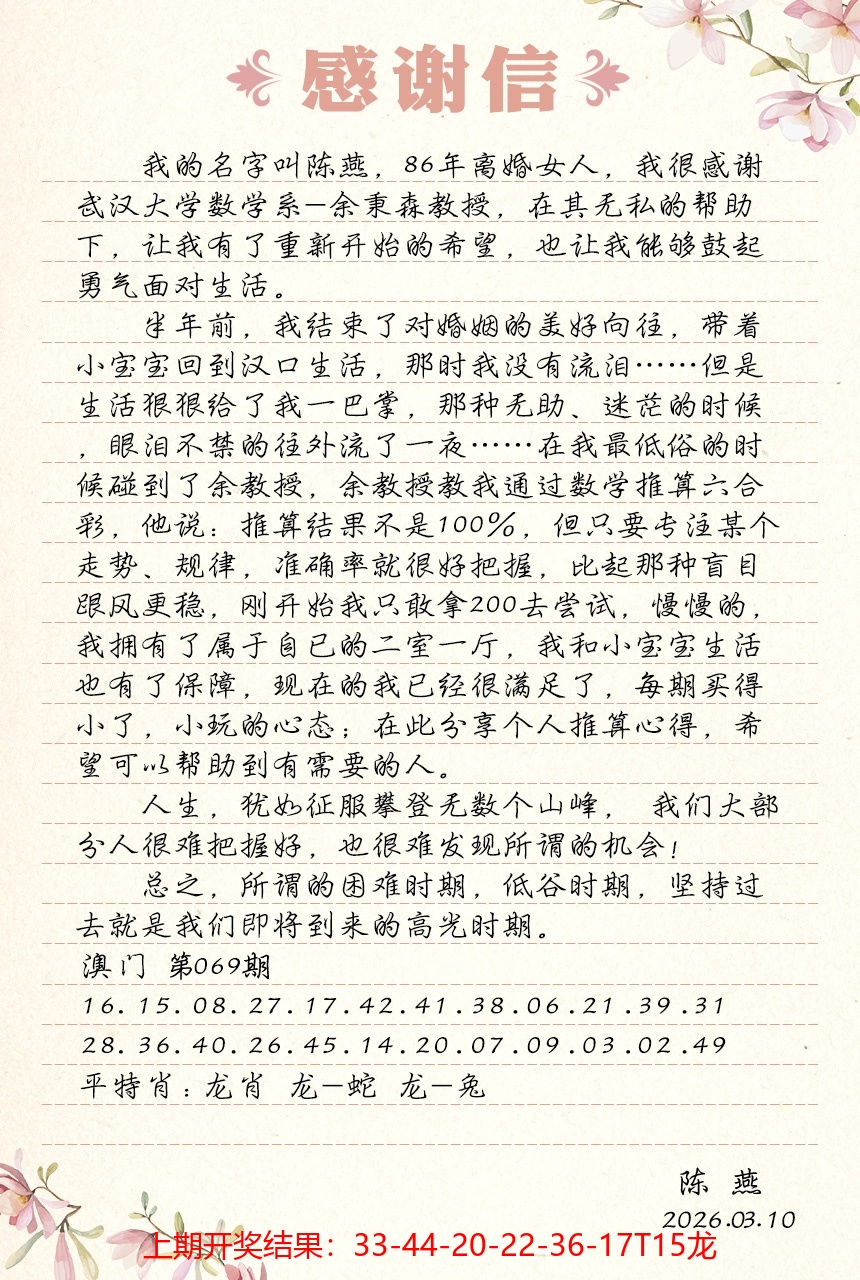 感谢信
我的名字叫陈燕，86年离婚女人，我很感谢
武汉大学数学系—余秉森教授，在其无私的帮助
下，让我有了重新开始的希望，也让我能够鼓起
勇气面对生活。
半年前，我结束了对婚姻的美好向往，带着
小宝宝回到汉口生活，那时我没有流泪……但是
生活狠狠给了我一巴掌，那种无助、迷茫的时候
，眼泪不禁的往外流了一夜……在我最低俗的时
候碰到了余教授，余教授教我通过数学推算六合
彩，他说：推算结果不是100%，但只要专注某个
走势、规律，准确率就很好把握，比起那种盲目
跟风更稳，刚开始我只敢拿200去尝试，慢慢的，
我拥有了属于自己的二室一厅，我和小宝宝生活
也有了保障，现在的我已经很满足了，每期买得
小了，小玩的心态；在此分享个人推算心得，希
望可以帮助到有需要的人。
人生，犹如征服攀登无数个山峰， 我们大部
分人很难把握好，也很难发现所谓的机会！
总之，所谓的困难时期，低谷时期，坚持过
去就是我们即将到来的高光时期。
澳门 第069期
16.15.08.27.17.42.41.38.06.21.39.31
28.36.40.26.45.14.20.07.09.03.02.49
平特肖：龙肖 龙—蛇 龙—兔
陈 燕
2026.03.10
上期开奖结果：33-44-20-22-36-17T15龙